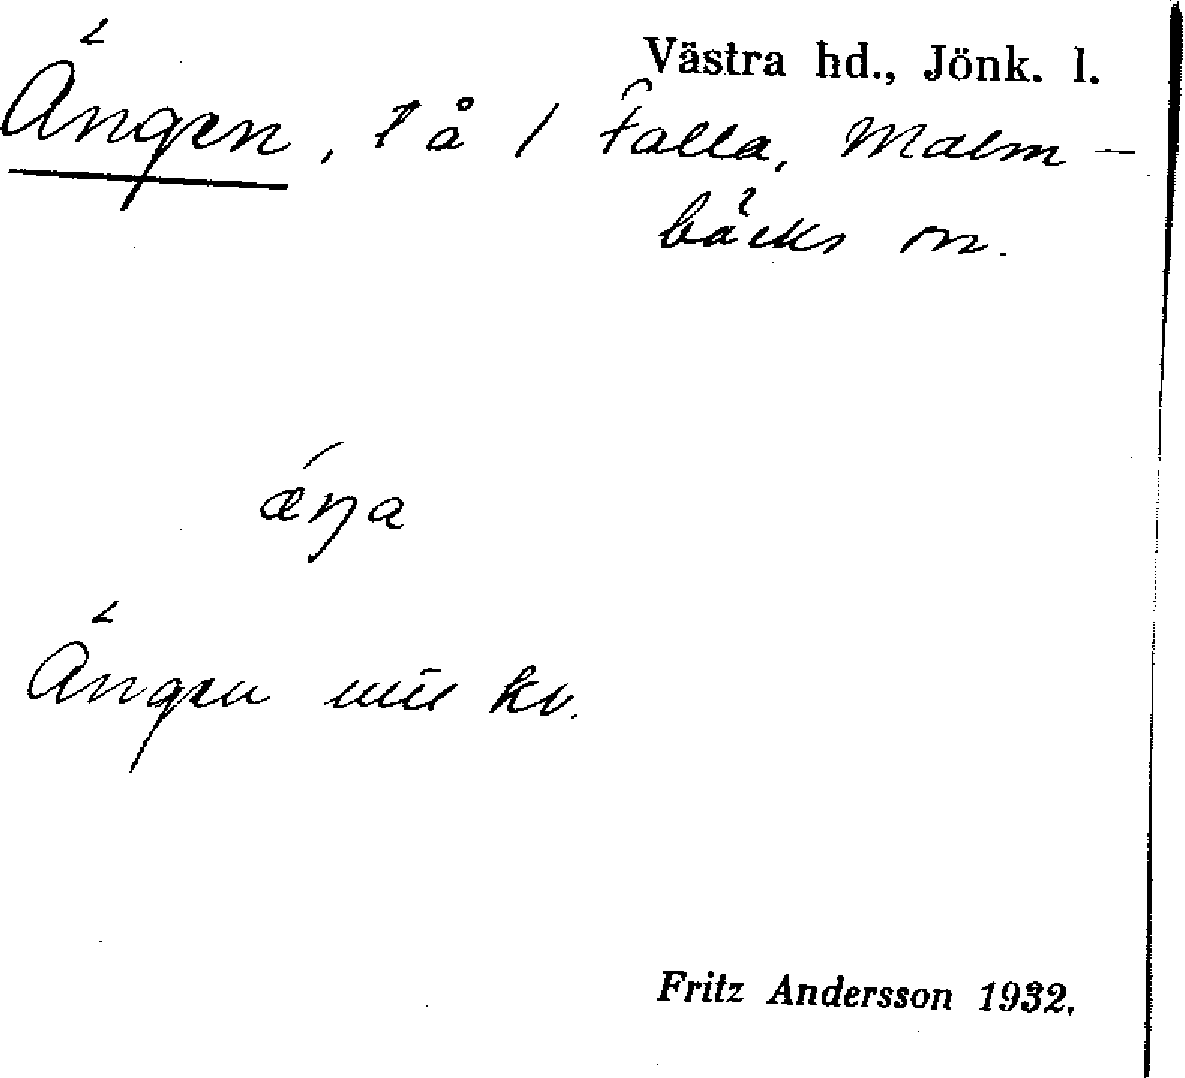 Västra hd., Jönk. l.
Ängen, l å 1 Falla, Malm-
bäcks sn.
ǽŋa
Ängen mil kv.
Fritz Andersson 1932.